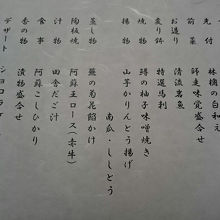 先付 林檎の白和え
前菜 師走味覚盛合せ
お造り 清流岩魚
変り鉢 特選馬刺
焼物 鱒の柚子味噌焼き
揚物 山芋かりんとう揚げ
南瓜・ししとう
蒸し物 蕪の菊花餡かけ
陶板焼 阿蘇王ロース（赤牛）
汁物 田舎だご汁
食事 阿蘇こしひかり
香の物 漬物盛合せ
デザート